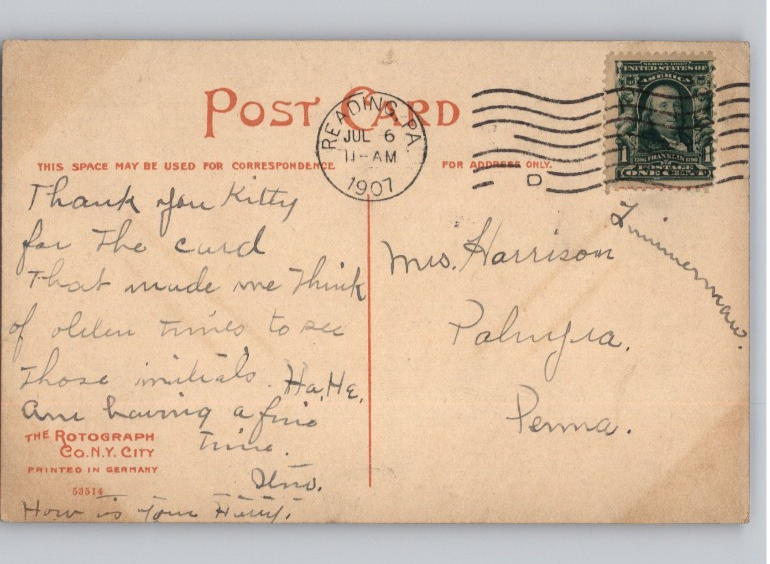 POST CARD
THIS SPACE MAY BE USED FOR CORRESPONDENCE
FOR ADDRESS ONLY.
READING, PA.
JUL 6
11-AM
1907
D
SERIES 1902
UNITED STATES OF
AMERICA
1 FRANKLIN 1
POSTAGE
ONE CENT
Thank you Kitty
for the card
that made me think
of olden times to see
those initials. Ha, Ha,
Am having a fine
time.
How is your Harry.
Mrs. Harrison
Zimmerman.
Palmyra.
Penna.
THE ROTOGRAPH
CO. N.Y. CITY
PRINTED IN GERMANY
53514